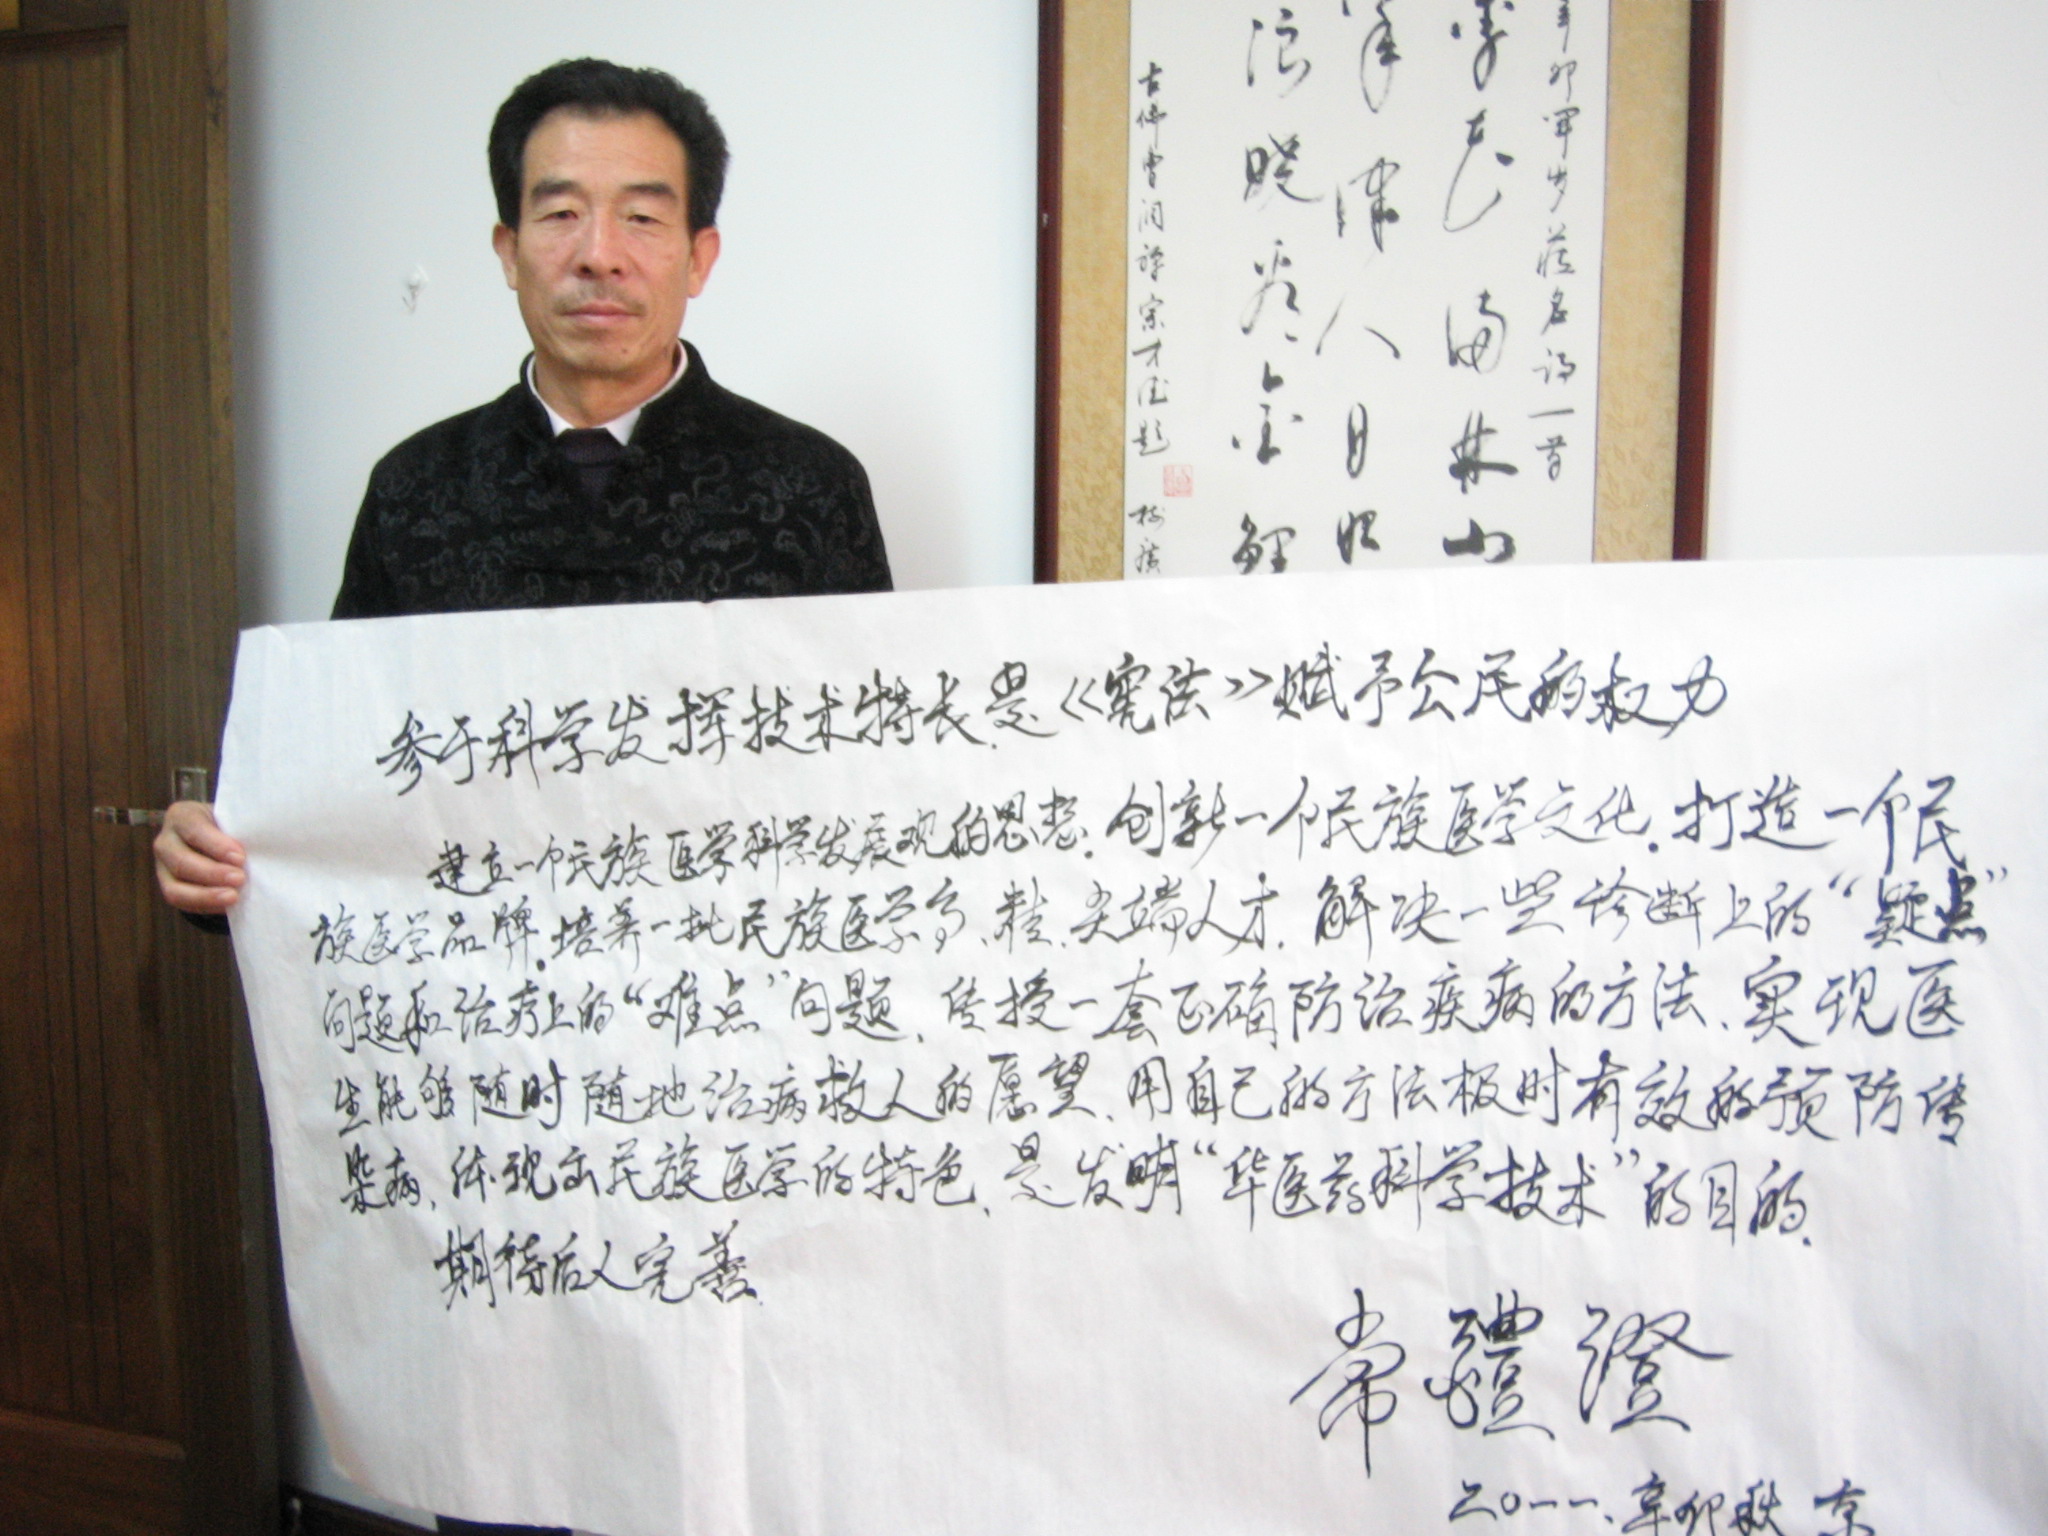 参于科学发挥技术特长是《宪法》赋予公民的权力
建立一个民族医学科学发展观的思想.创新一个民族医学文化.打造一个民
族医学品牌.培养一批民族医学高、精、尖端人才.解决一些诊断上的“疑点”
问题和治疗上的“难点”问题、传授一套正确防治疾病的方法、实现医
生能够随时随地治病救人的愿望、用自己的方法极时有效的预防传
染病、体现出民族医学的特色、是发明“华医药科学技术”的目的.
期待后人完善
常體澄
二〇一一、辛卯秋 京
辛卯军岁 名诗一首
林山
人日照
浪 金鲤
古佛曾润 宗才 题